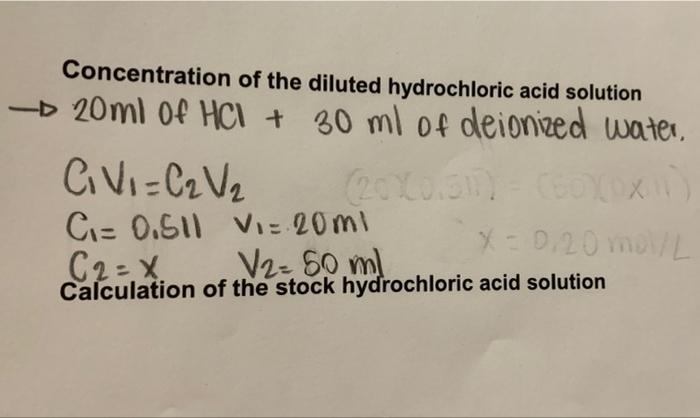 Concentration of the diluted hydrochloric acid solution
→ 20ml of HCl + 30 ml of deionized water.
C₁V₁=C₂V₂
(20)(0.511) = (50)(x)
C₁= 0.511 V₁= 20ml
x = 0.20 mol/L
C2 = x V2= 50 ml
Calculation of the stock hydrochloric acid solution